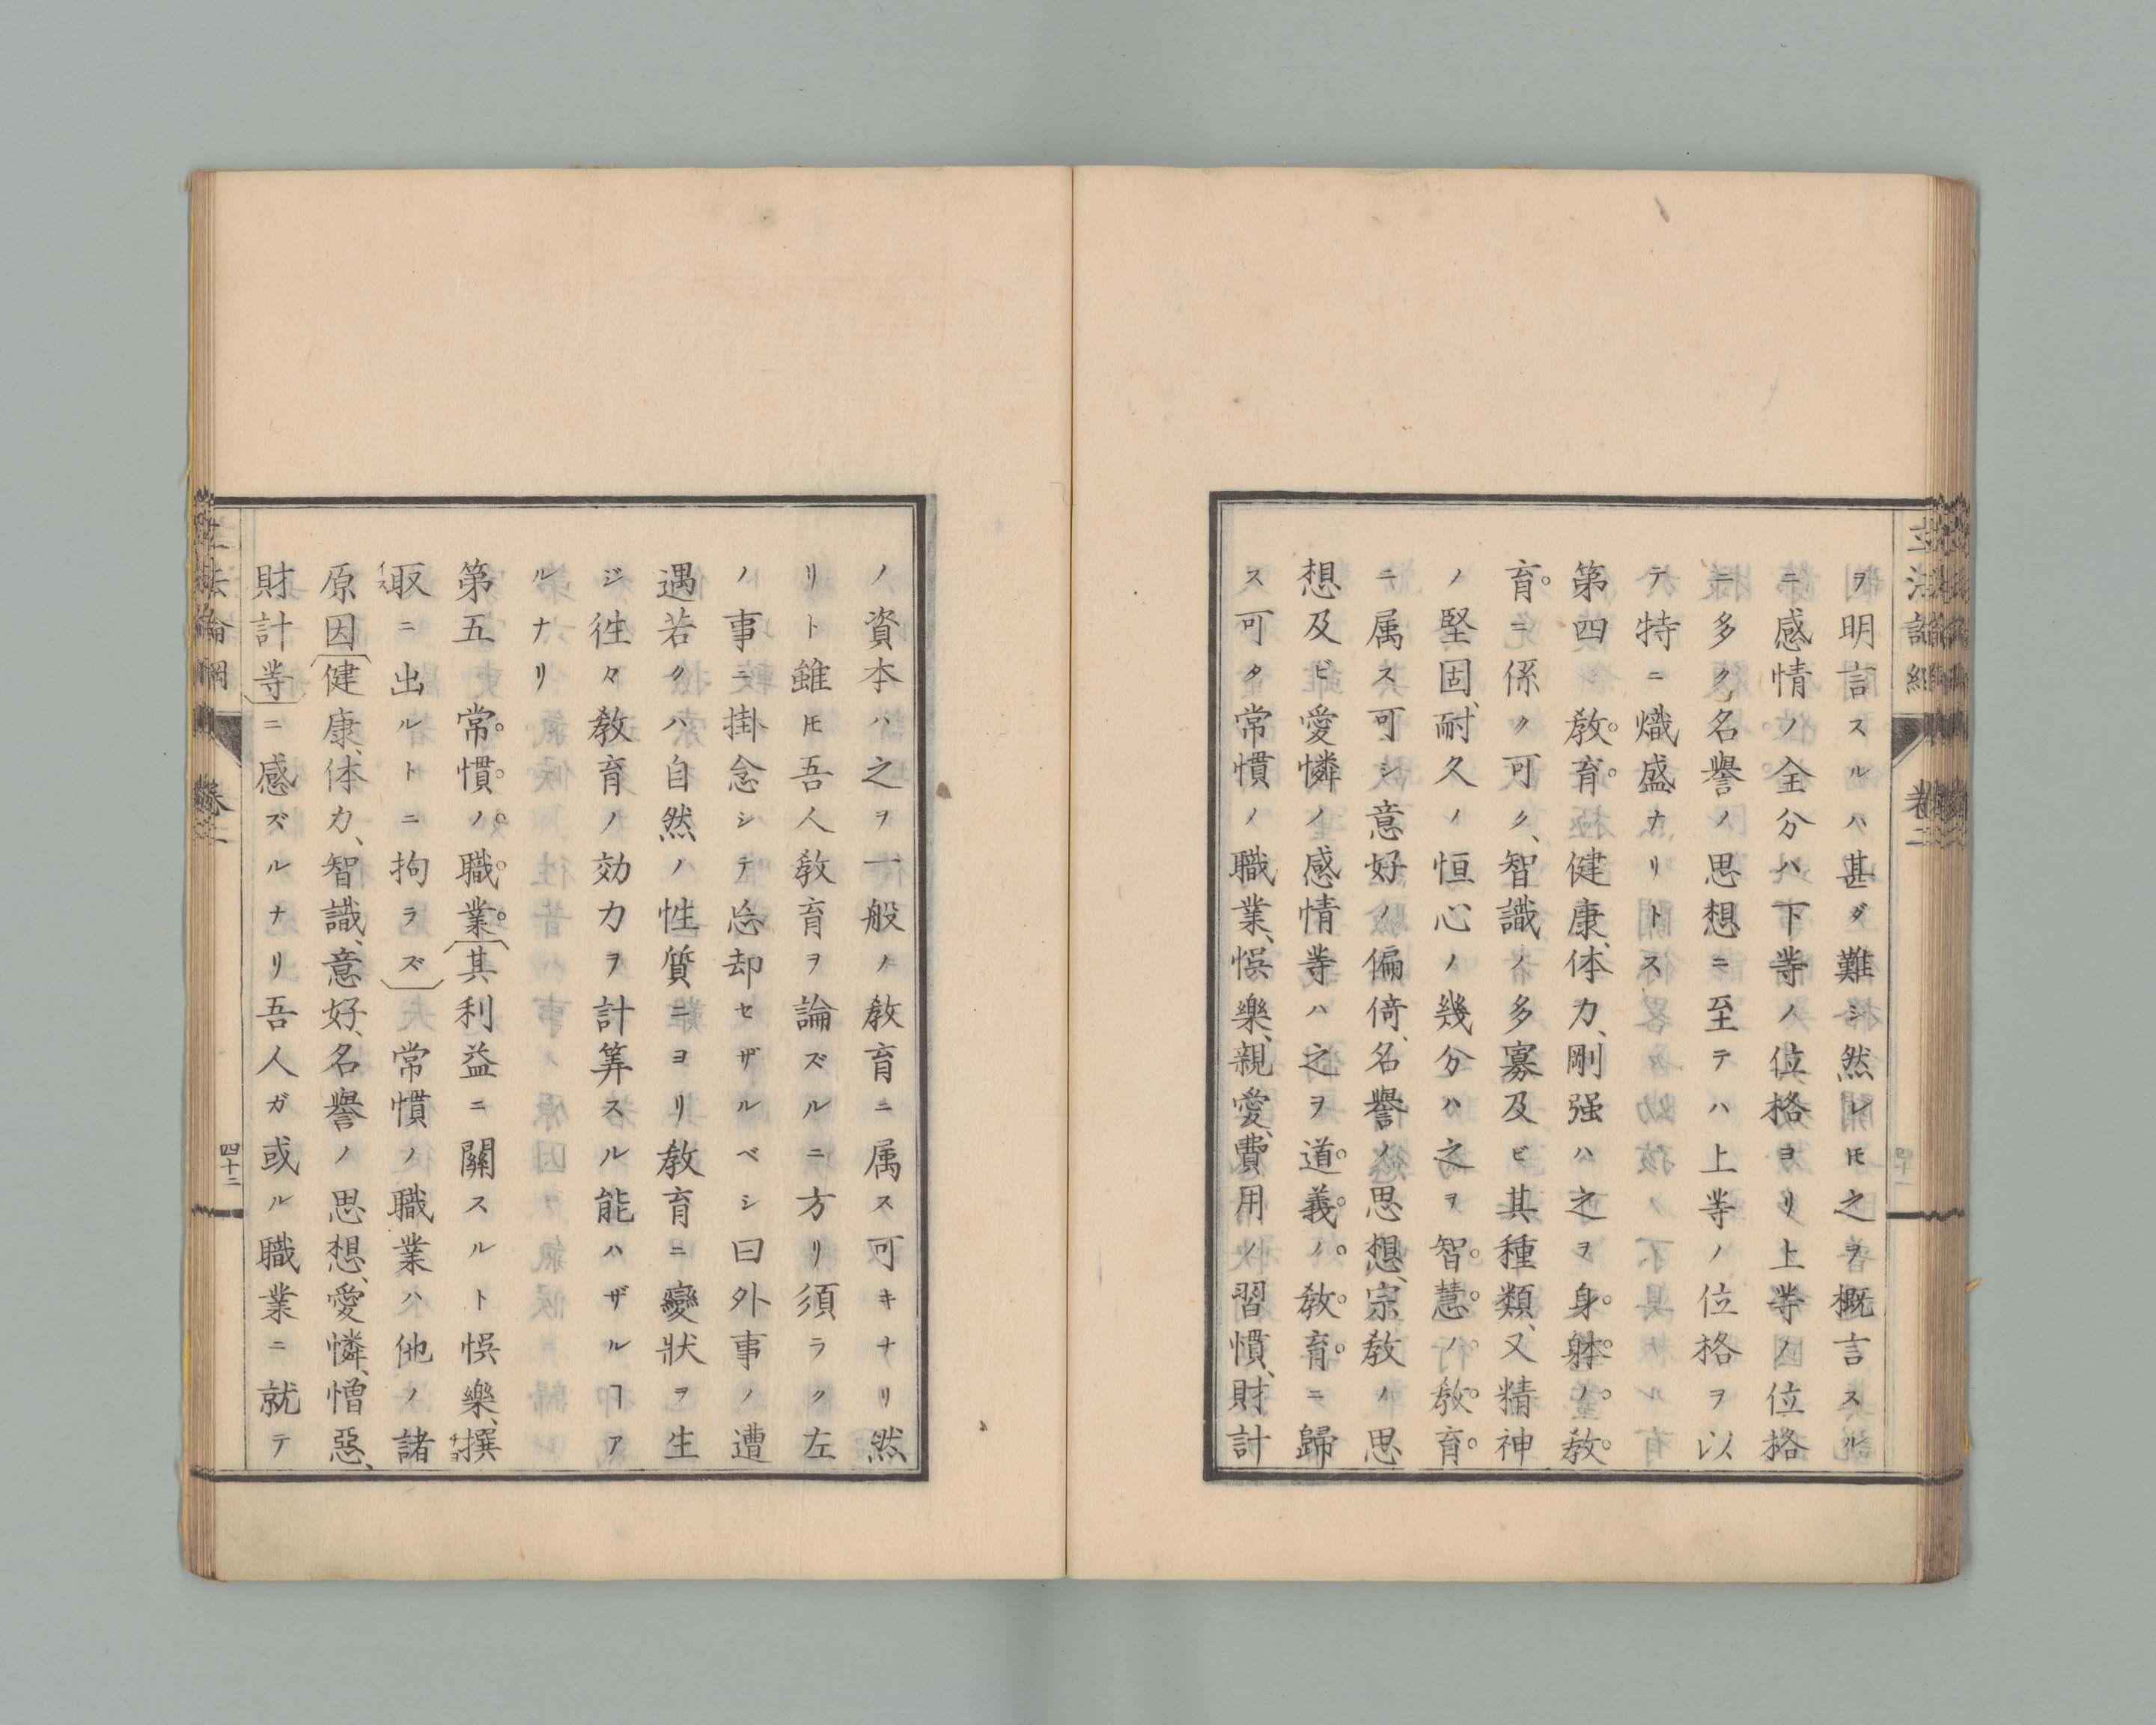 ヲ明言スルハ甚ダ難シ然レ𪜈之ヲ概言スル
ニ感情ノ全分ハ下等ノ位格ヨリ上等ノ位格
ニ多ク、名譽ノ思想ニ至テハ上等ノ位格ヲ以
テ特ニ熾盛ナリトス
第四 教育 健康、体力、剛强ハ之ヲ身躰ノ教
育ニ係ク可ク、智識ノ多寡及ビ其種類、又精神
ノ堅固、耐久ノ恒心ノ幾分ハ之ヲ智慧ノ教育
ニ属ス可シ意好ノ偏倚、名譽ノ思想、宗教ノ思
想及ビ愛憐ノ感情等ハ之ヲ道義ノ教育ニ歸
ス可タ常慣ノ職業、悞樂、親愛、費用ノ習慣、財計
ノ資本ハ之ヲ一般ノ教育ニ属ス可キナリ然
リト雖𪜈吾人教育ヲ論ズルニ方リ須ラク左
ノ事ニ掛念シテ忘却セザルベシ曰外事ノ遭
遇若クハ自然ノ性質ニヨリ教育ニ變狀ヲ生
ジ徃々教育ノ効力ヲ計筭スル能ハザルヿア
ルナリ
第五 常慣ノ職業(其利益ニ關スルト悞樂、撰
取ニ出ルトニ拘ラズ)常慣ノ職業ハ他ノ諸
原因(健康、体力、智識、意好、名譽ノ思想、愛憐、憎惡、
財計等)ニ感ズルナリ吾人ガ或ル職業ニ就テ
卷二
四十二